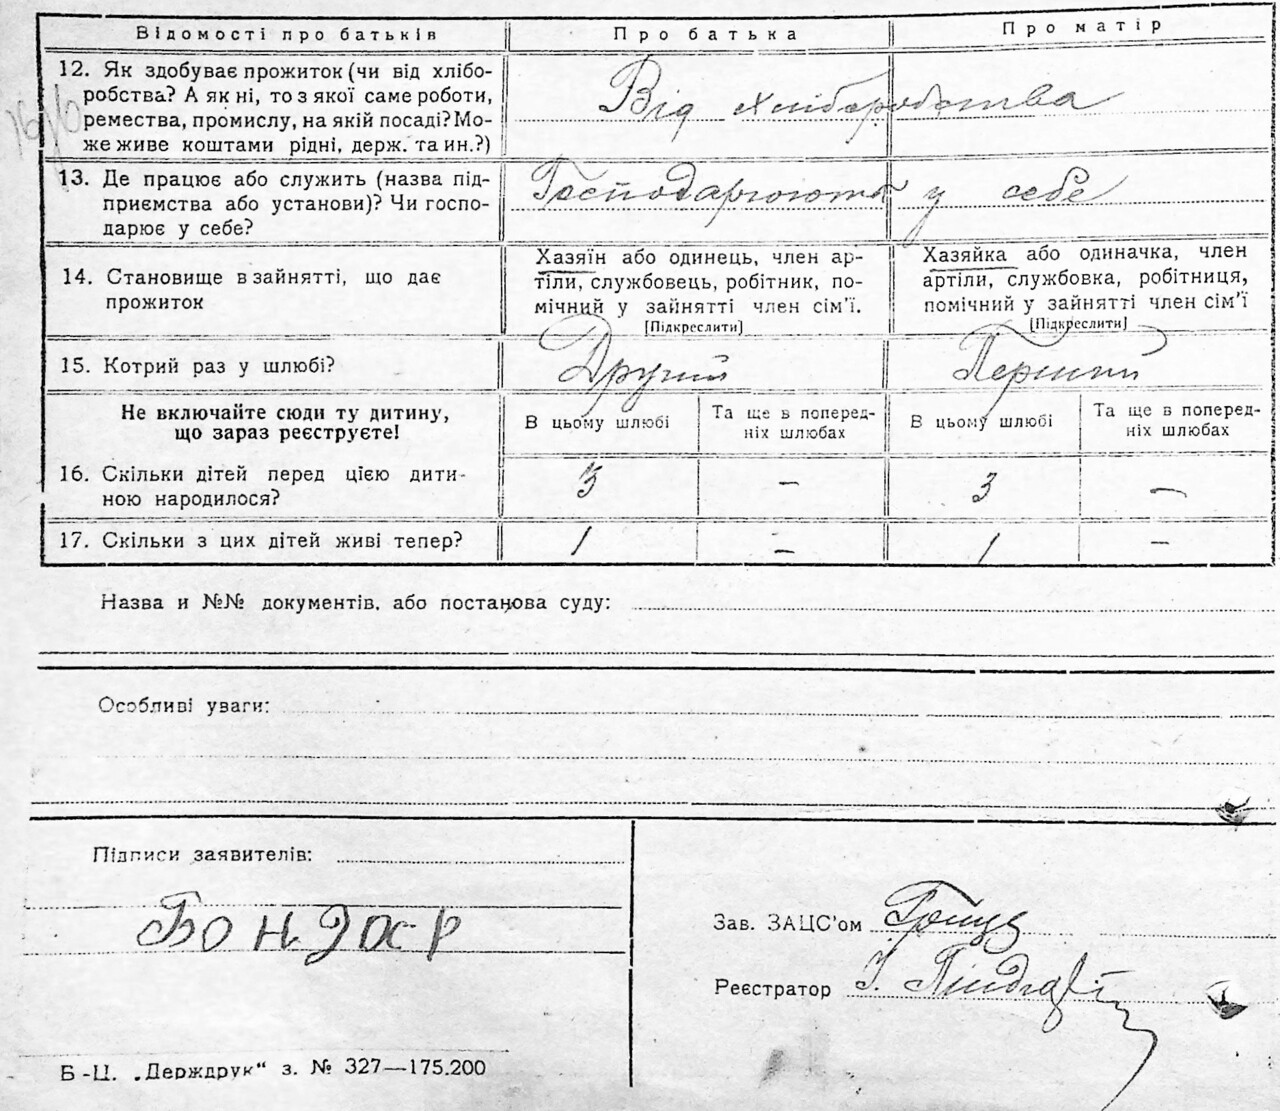 Відомості про батьків Про батька Про матір
12. Як здобуває прожиток (чи від хлібо-
робства? А як ні, то з якої саме роботи,
ремества, промислу, на якій посаді? Мо-
же живе коштами рідні, держ. та ин.?)
Від хліборобства
13. Де працює або служить (назва під-
приємства або установи)? Чи госпо-
дарює у себе?
Господарюють у себе
14. Становище в зайнятті, що дає
прожиток
Хазяїн або одинець, член ар-
тіли, службовець, робітник, по-
мічний у зайнятті член сім'ї.
[Підкреслити]
Хазяйка або одиначка, член
артіли, службовка, робітниця,
помічний у зайнятті член сім'ї
[Підкреслити]
15. Котрий раз у шлюбі? Другий Перший
Не включайте сюди ту дитину,
що зараз реєструєте!
В цьому шлюбі
Та ще в поперед-
ніх шлюбах
В цьому шлюбі
Та ще в поперед-
ніх шлюбах
16. Скільки дітей перед цією дити-
ною народилося?
3 — 3 —
17. Скільки з цих дітей живі тепер? 1 — 1 —
Назва и №№ документів, або постанова суду:
Особливі уваги:
Підписи заявителів:
Бондар
Зав. ЗАЦС'ом
Реєстратор І.
Б-Ц. „Держдрук“ з. № 327—175.200